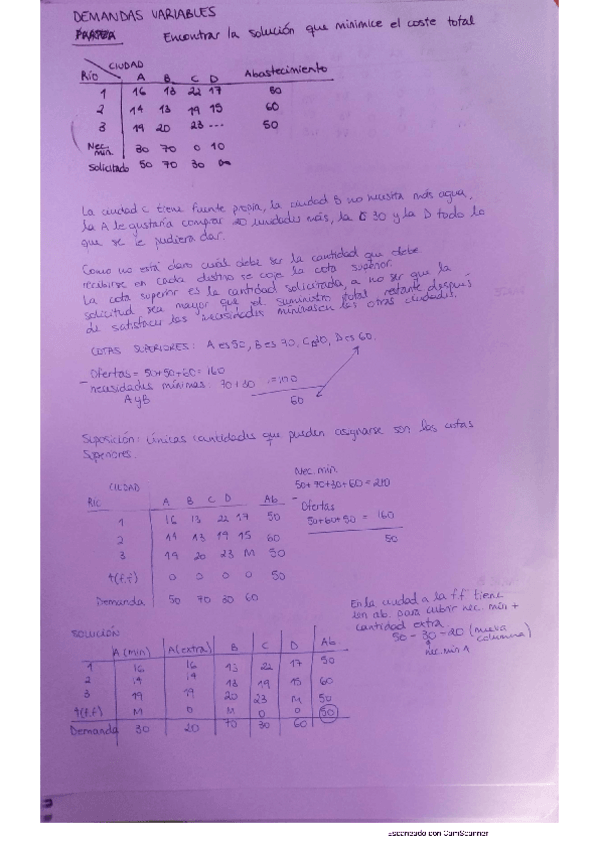 DEMANDAS VARIABLES
Encontrar la solución que minimice el coste total
CIUDAD
Río A B C D Abastecimiento
1 16 13 22 17 50
2 14 13 19 15 60
3 19 20 23 --- 50
Nec. min. 30 70 0 10
Solicitado 50 70 30 ∞
La ciudad C tiene fuente propia, la ciudad B no necesita más agua,
la A le gustaría comprar 20 unidades más, la C 30 y la D todo lo
que se le pudiera dar.
Como no está claro cuál debe ser la cantidad que debe
recibirse en cada destino se coje la cota superior.
La cota superior es la cantidad solicitada, a no ser que la
solicitud sea mayor que el suministro total restante después
de satisfacer las necesidades mínimas en las otras ciudades.
COTAS SUPERIORES: A es 50, B es 70, C 30, D es 60.
Ofertas = 50+50+60 = 160
- necesidades mínimas: 70+30 = 100
A y B
60
Suposición: únicas cantidades que pueden asignarse son las cotas
superiores.
Nec. min.
50+70+30+60 = 210
- Ofertas
50+60+50 = 160
50
CIUDAD
Río A B C D Ab
1 16 13 22 17 50
2 14 13 19 15 60
3 19 20 23 M 50
4(f.f) 0 0 0 0 50
Demanda 50 70 30 60
En la ciudad A la f.f tiene
un ab. para cubrir nec. min +
cantidad extra
50 - 30 = 20 (nueva
columna)
nec. min A
SOLUCIÓN
A (min) A(extra) B C D Ab
1 16 16 13 22 17 50
2 14 14 13 19 15 60
3 19 19 20 23 M 50
4(f.f) M 0 M 0 0 50
Demanda 30 20 70 30 60
Escaneado con CamScanner